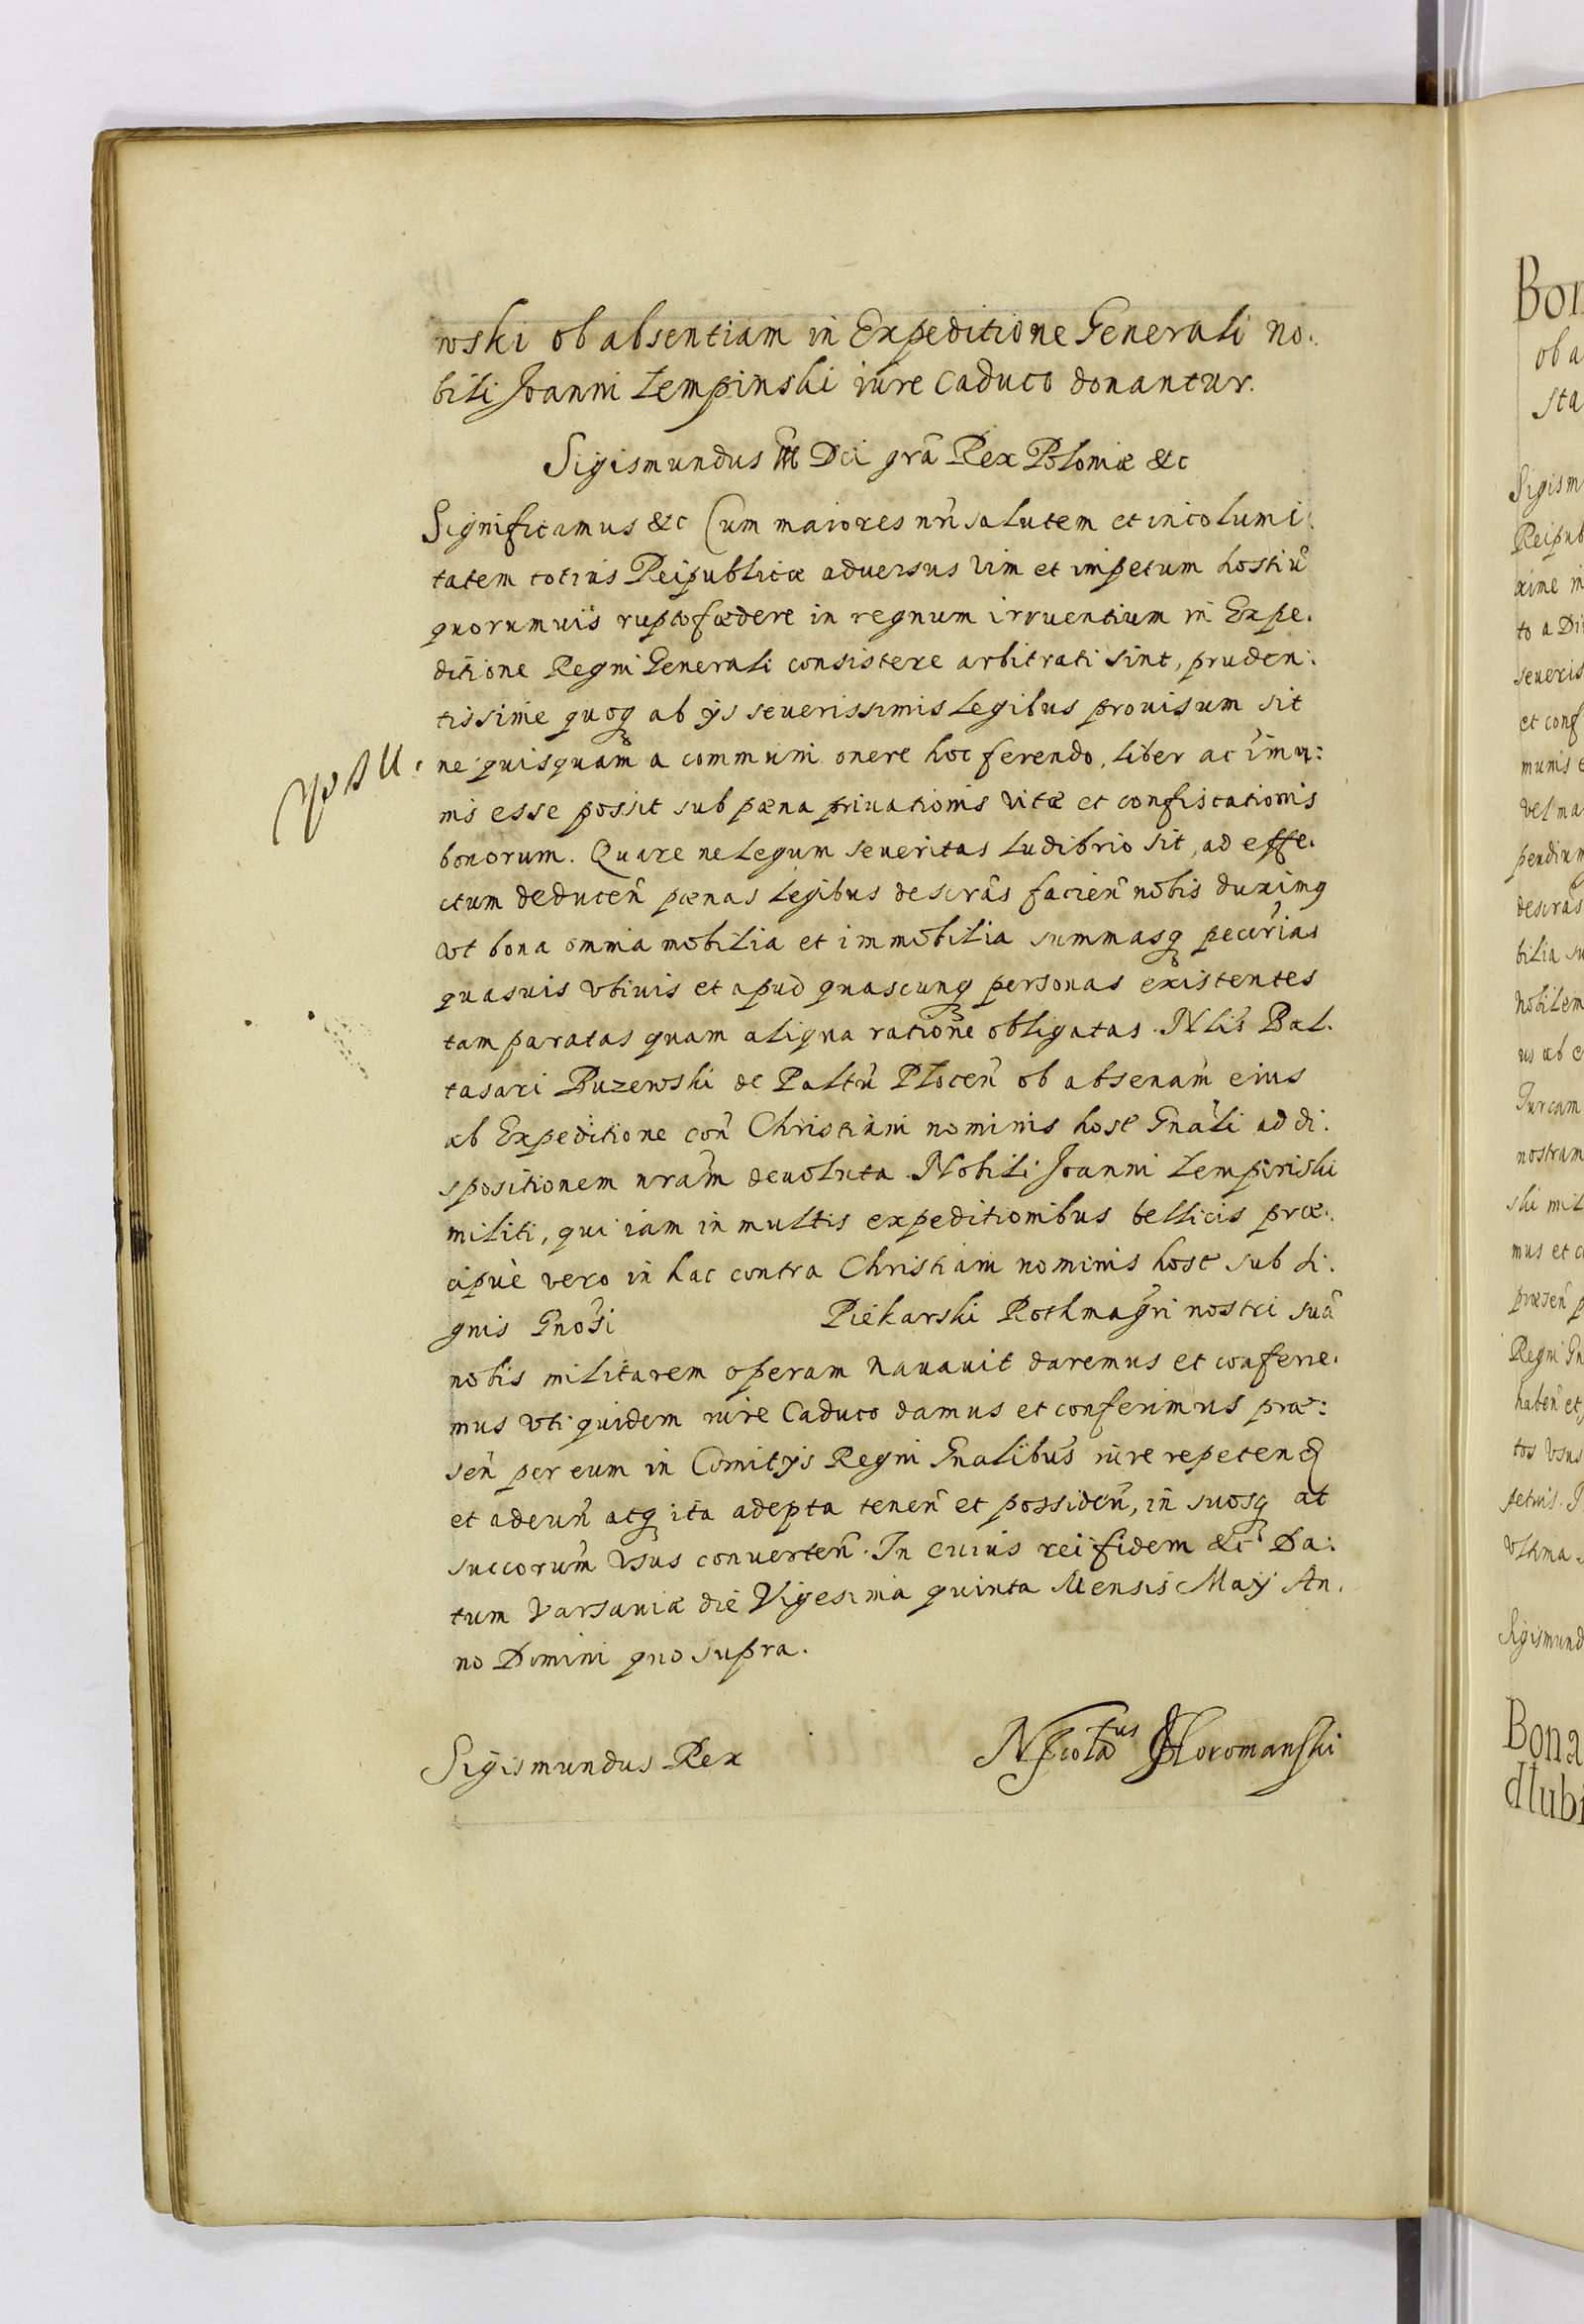 wski ob absentiam in Expeditione Generali no:
bili Joanni Lempinski iure Caduco donantur.
Sigismundus III Dei grã Rex Poloniæ &c
Significamus &c Cum maiores nrĩ salutem et incolumi:
tatem totius Reipublicæ aduersus vim et impetum hostiũ
quorumuis rupto fœdere in regnum irruentium in Expe:
ditione Regni Generali consistere arbitrati sint, pruden:
tissime quoq ab ijs seuerissimis legibus prouisum sit
ne quisquam a communi onere hoc ferendo, liber ac imu:
nis esse possit sub pœna priuationis vitæ et confiscationis
bonorum. Quare ne legum seueritas ludibrio sit, ad effe:
ctum deducen̄ pœnas legibus descrãs facien̄ nobis duximq
vt bona omnia mobilia et immobilia summasq pecũrias
quasuis vbiuis et apud quascunq personas existentes
tam paratas quam aliqua ratione obligatas. Nlis Bal:
tasari Buzewski de Paltũ Plocen̄ ob absenãm eius
ab Expeditione con̄ Christiani nominis hoste Gnãli ad di:
spositionem nrãm deuoluta. Nobili Joanni Lempinski
militi, qui iam in multis expeditionibus bellicis præ:
cipue vero in hac contra Christiani nominis hoste sub si:
gnis Gnosi Piekarski Rothmagri nostri suã
nobis militarem operam nauauit daremus et conferre:
mus vti quidem iure Caduco damus et conferimus præ:
sen̄ per eum in Comitijs Regni Gnalibus iure repeten̄
et adeun̄ atq ita adepta tenen̄ et possiden̄, in suosq at
succorum vsus conuerten̄. In cuius rei fidem &c Da:
tum Varsauiæ die Vigesima quinta Mensis Maij An:
no Domini quo supra.
Sigismundus Rex
Nicolaus Horomanski
Bon
ob a
sta
Sigism
Reipub
xime in
to a Di
seueris
et conf
munis e
vel ma
pendium
descrãs
bilia su
Nobilem
us ab e
Turcam
nostram
ski mil
mus et c
præsen̄ p
Regni Gn
haben̄ et
tos vsus
Sigismund
Bona
dlubi